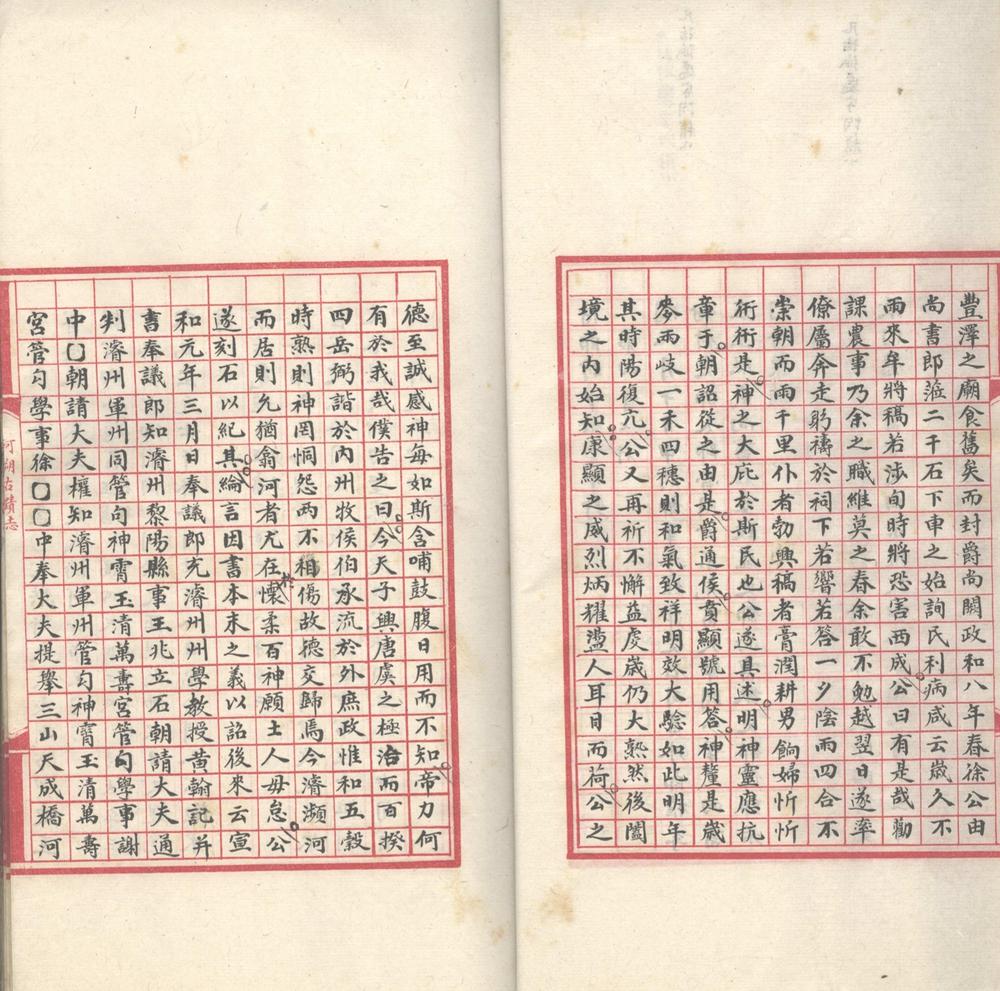 豐澤之廟食舊矣而封爵尚闕政和八年春徐公由
尚書郎蒞二千石下車之始詢民利病咸云歲久不
雨來牟將稿若涉旬時將恐害西成公曰有是哉勸
課農事乃余之職維莫之春余敢不勉越翌日遂率
僚屬奔走躬禱於祠下若響若答一夕陰雨四合不
崇朝而雨千里仆者勃興稿者膏潤耕男餉婦忻忻
衎衎是神之大庇於斯民也公遂具述明神靈應抗
章于朝詔從之由是爵通侯賁顯號用答神釐是歲
麥雨岐一禾四穗則和氣致祥明效大驗如此明年
其時陽復亢公又再祈不懈益虔歲仍大熟然後闔
境之内始知康顯之威烈炳耀盪人耳目而荷公之
德至誠感神每如斯含哺鼓腹日用而不知帝力何
有於我哉僕告之曰今天子興唐虞之極治而百揆
四岳弼諧於内州牧侯伯承流於外庶政惟和五穀
時熟則神罔恫怨两不相傷故德交歸焉今濬瀕河
而居則允猶翕河者尤在懷柔百神願士人毋怠公
遂刻石以紀其綸言因書本末之義以詔後來云宣
和元年三月日奉議郎充濬州州學教授黄翰記并
書奉議郎知濬州黎陽縣事王兆立石朝請大夫通
判濬州軍州同管句神霄玉清萬壽宮管句學事謝
中〇朝請大夫權知濬州軍州管勾神霄玉清萬壽
宮管勾學事徐〇〇中奉大夫提舉三山天成橋河
河朔古蹟志